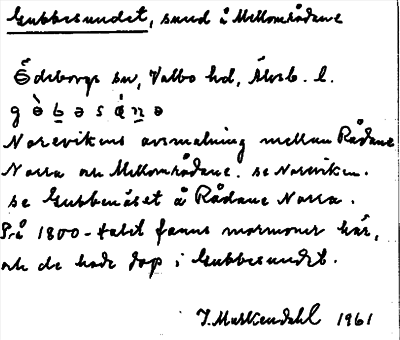 Gubbesundet, sund å Mellområdane
Ödeborgs sn, Valbo hd, Älvsb. l.
g ə̀ b ə s ə́ n ə
Norevikens avsmalning mellan Rådane
Norra och Mellområdane. se Noreviken.
se Gubbenäset å Rådane Norra.
På 1800-talet fanns mormoner här,
och de hade dop i Gubbesundet.
J. Markendahl 1961